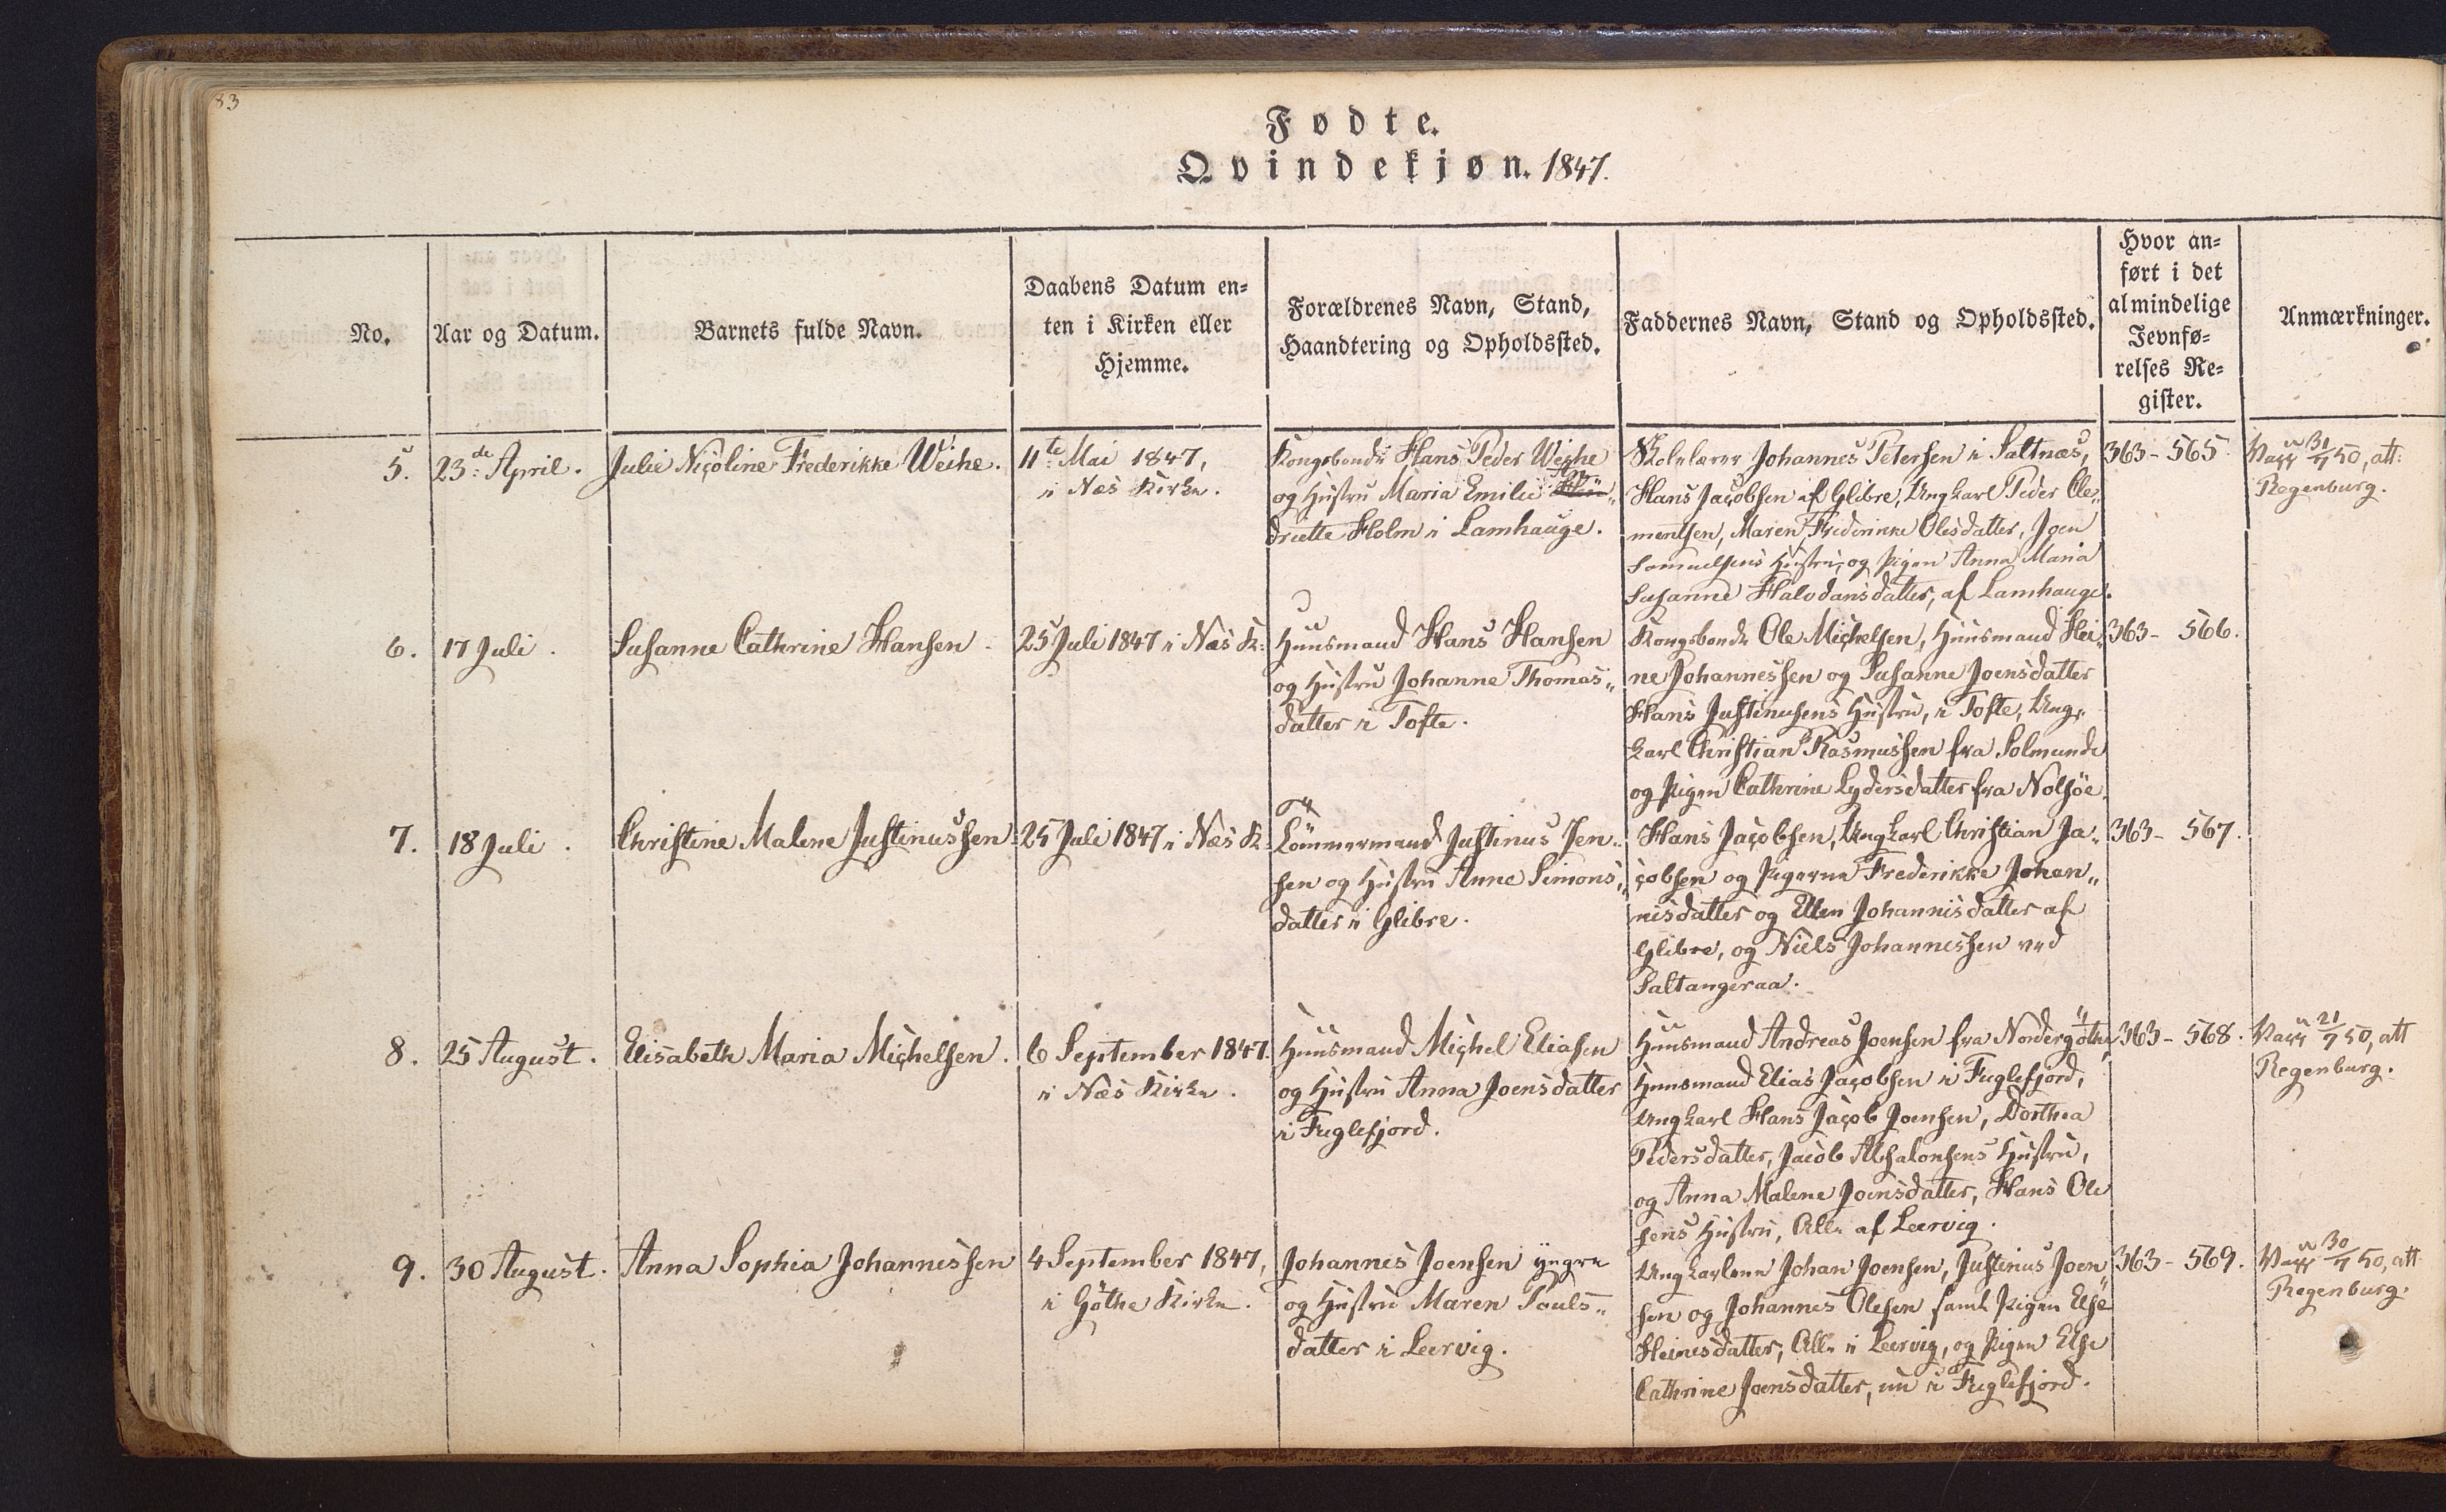 83
Fødte.
Qvindekjøn. 1847.
No.
Aar og Datum.
Barnets fulde Navn.
Daabens Datum en=
ten i Kirken eller
Hjemme.
Forældrenes Navn, Stand,
Haandtering og Opholdssted.
Faddernes Navn, Stand og Opholdssted.
Hvor an=
ført i det
almindelige
Jevnfø=
relses Re=
gister.
Anmærkninger.
5.
23de April.
Julie Nicoline Frederikke Weihe.
11te Mai 1847,
i Næs Kirke.
Kongsbonde Hans Peder Weihe
og Hustru Maria Emilie
driette Holm i Lamhauge.
Skolelærer Johannes Petersen i Saltnæs,
Hans Jacobsen af Glibre, Ungkarl Peder Cle„
mentsen, Maren Frederikke Olesdatter, Joen
Samuelsens Hustru, og Pigen Anna Maria
Susanne Halvdansdatter, af Lamhauge.
363- 565.
Vacc 31/7 50, att:
Regenburg.
6.
17 Juli.
Susanne Cathrine Hansen.
25 Juli 1847 i Næs K:
Huusmand Hans Hansen
og Hustru Johanne Thomas„
datter i Tofte.
Kongsbonde Ole Michelsen, Huusmand Hei„
ne Johannessen og Susanne Joensdatter
Hans Justinusens Hustru, i Tofte, Ung„
karl Christian Rasmussen fra Solmunde
og Pigen Cathrine Lydersdatter fra Nolsöe.
363- 566.
7.
18 Juli.
Christine Malene Justinussen.
25 Juli 1847 i Næs K:
Tömmermand Justinus Jen„
sen og Hustru Anne Simons„
datter i Glibre.
Hans Jacobsen, Ungkarl Christian Ja„
cobsen og Pigerne Frederikke Johan„
nisdatter og Ellen Johannisdatter af
Glibre, og Niels Johannessen ved
Saltangeraa.
363- 567.
8.
25 August.
Elisabeth Maria Michelsen.
6 September 1847.
i Næs Kirke.
Huusmand Michel Eliasen
og Hustru Anna Joensdatter
i Fuglefjord.
Huusmand Andreas Joensen fra Nordergöthe,
Huusmand Elias Jacobsen i Fuglefjord,
Ungkarl Hans Jacob Joensen, Dorthea
Pedersdatter, Jacob Absalonsens Hustru,
og Anna Malene Joensdatter, Hans Ole
sens Hustru, Alle af Leervig.
363- 568.
Vacc 21/7 50, att
Regenburg.
9.
30 August.
Anna Sophia Johannessen
4 September 1847,
i Göthe Kirke.
Johannes Joensen yngre
og Hustru Maren Pouls„
datter i Leervig.
Ungkarlene Johan Joensen, Justinus Joen
sen og Johannes Olesen samt Pigen Else
Heinesdatter, Alle i Leervig, og Pigen Else
Cathrine Joensdatter, nu i Fuglefjord.
363- 569.
Vacc 30/7 50, att
Regenburg.